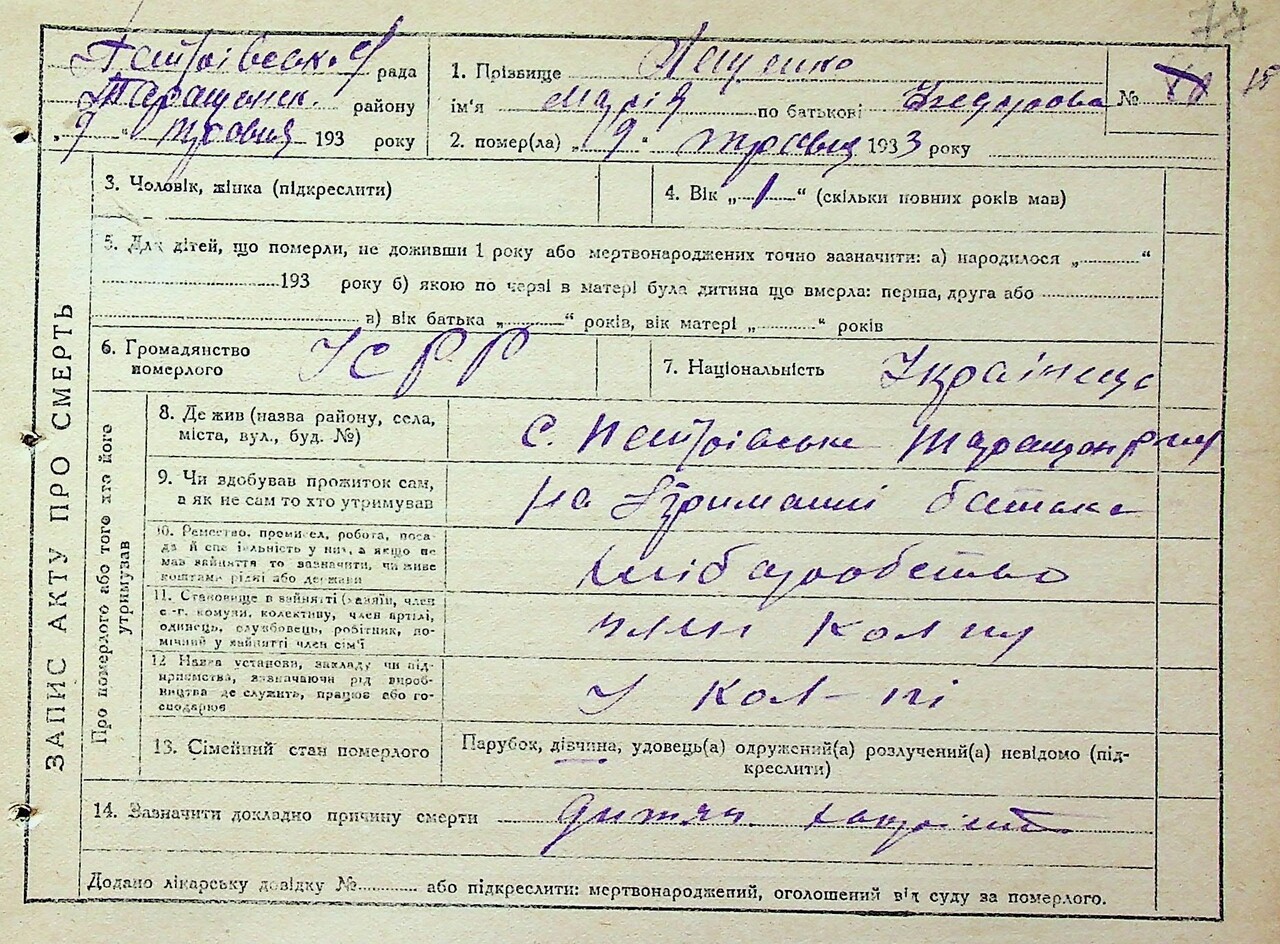 77
Петрівська рада
Таращанськ. району
„ 9 “ травня 193 року
1. Прізвище Яценко
ім'я Марія по батькові Федорова
№ 18
2. помер(ла) „ 9 “ травня 1933 року
3. Чоловік, жінка (підкреслити)
4. Вік „ 1 “ (скільки повних років мав)
5. Для дітей, що померли, не доживши 1 року або мертвонароджених точно зазначити: а) народилося „ “
193 року б) якою по черзі в матері була дитина що вмерла: перша, друга або
в) вік батька „ “ років, вік матері „ “ років
6. Громадянство
померлого
УСРР
7. Національність Українка
ЗАПИС АКТУ ПРО СМЕРТЬ
Про померлого або того хто його
утримував
8. Де жив (назва району, села,
міста, вул., буд. №)
с. Петрівське Таращан
9. Чи здобував прожиток сам,
а як не сам то хто утримував
на утриманні батька
10. Ремество, промисел, робота, поса-
да й спеціяльність у них, а якщо не
мав зайняття то зазначити, чи живе
коштами рідні або держави
хліборобство
11. Становище в зайнятті (хазяїн, член
с-г. комуни, колективу, член артілі,
одинець, службовець, робітник, по-
мічний у зайнятті член сім'ї
член
12 Назва установи, закладу чи під-
приємства, зазначаючи рід вироб-
ництва де служить, працює або го-
сподарює
у кол-пі
13. Сімейний стан померлого
Парубок, дівчина, удовець(а) одружений(а) розлучений(а) невідомо (під-
креслити)
14. Зазначити докладно причину смерти дитяч.
Додано лікарську довідку № або підкреслити: мертвонароджений, оголошений від суду за померлого.